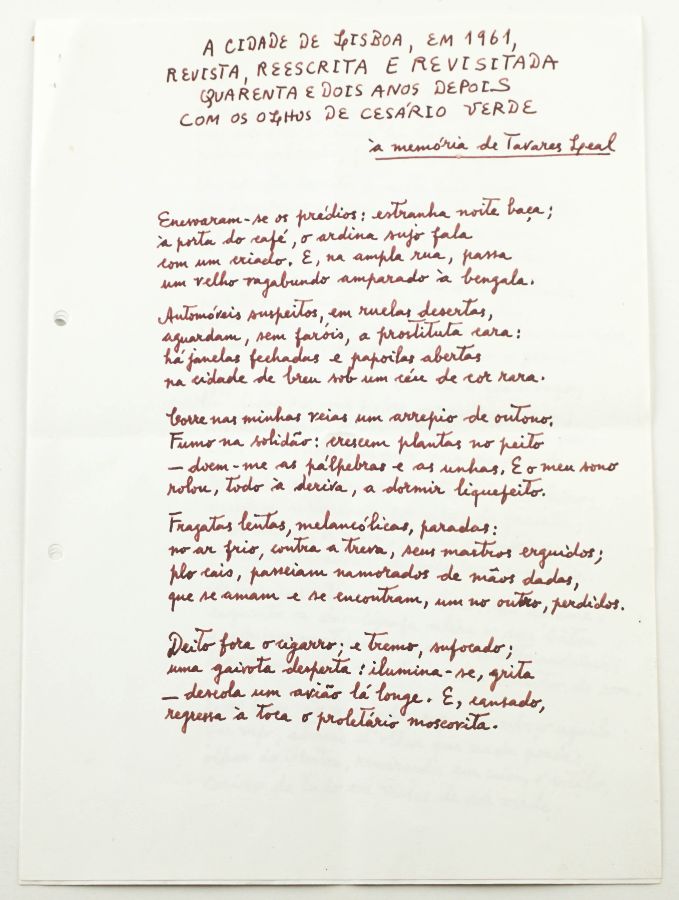 A CIDADE DE LISBOA, EM 1961,
REVISTA, REESCRITA E REVISITADA
QUARENTA E DOIS ANOS DEPOIS
COM OS OLHOS DE CESÁRIO VERDE
à memória de Tavares Leal
Enevoaram-se os prédios: estranha noite baça;
à porta do café, o ardina sujo fala
com um criado. E, na ampla rua, passa
um velho vagabundo amparado à bengala.
Automóveis suspeitos, em ruelas desertas,
aguardam, sem faróis, a prostituta cara:
há janelas fechadas e papoilas abertas
na cidade de breu sob um céu de cor rara.
Corre nas minhas veias um arrepio de outono.
Fumo na solidão: crescem plantas no peito
— doem-me as pálpebras e as unhas. E o meu sono
rolou, todo à deriva, a dormir liquefeito.
Fragatas lentas, melancólicas, paradas:
no ar frio, contra a treva, seus mastros erguidos;
plo cais, passeiam namorados de mãos dadas,
que se amam e se encontram, um no outro, perdidos.
Deito fora o cigarro; e tremo, sufocado;
uma gaivota desperta: ilumina-se, grita
— descola um avião lá longe. E, cansado,
regressa à toca o proletário moscovita.